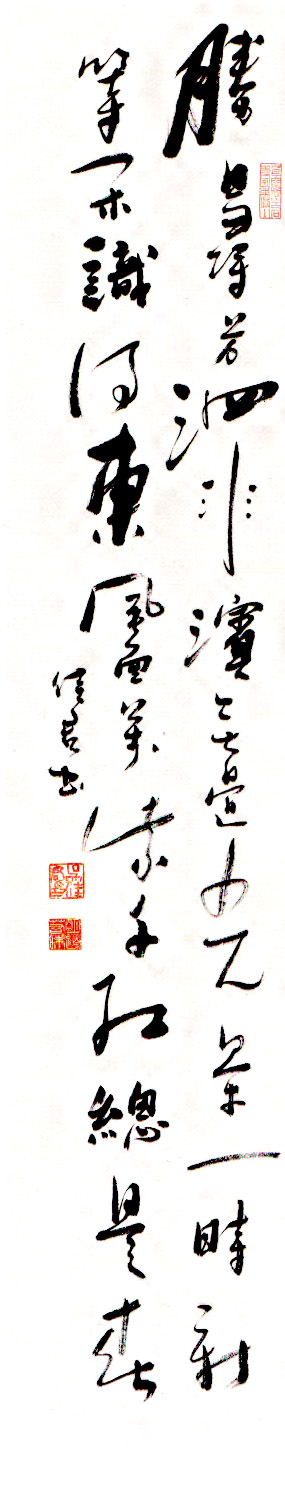 勝日尋芳泗水濱無邊光景一時新
等閒識得東風面萬紫千紅總是春